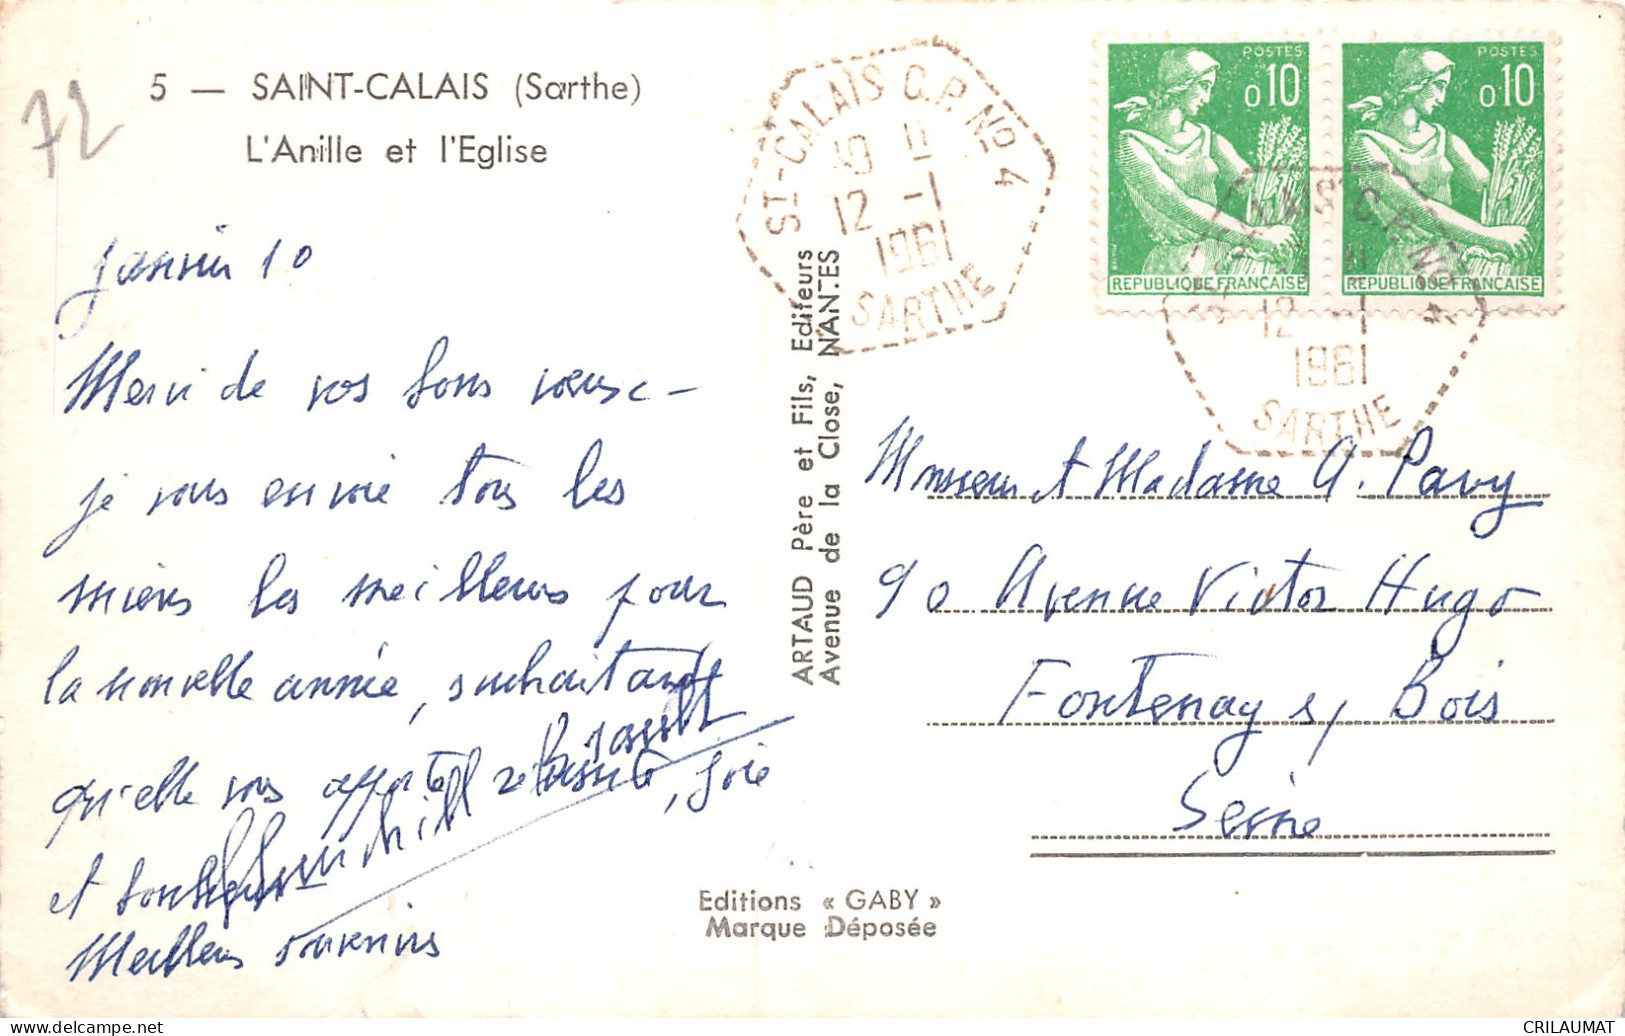 72
5 — SAINT-CALAIS (Sarthe)
L'Anille et l'Eglise
Janvier 10
Merci de vos bons vœux –
je vous envoie tous les
miens les meilleurs pour
la nouvelle année, souhaitant
qu'elle vous apporte réussite, joie
et bonheur
Meilleurs souvenirs
ARTAUD Père et Fils, Editeurs
Avenue de la Close, NANTES
Editions « GABY »
Marque Déposée
ST-CALAIS C.P. No 4
12 -1
1961
SARTHE
POSTES
0,10
REPUBLIQUE FRANÇAISE
POSTES
0,10
REPUBLIQUE FRANÇAISE
C.P. No 4
12 -1
1961
SARTHE
Monsieur et Madame A. Pavy
90 Avenue Victor Hugo
Fontenay s/ Bois
Seine
CRILAUMAT